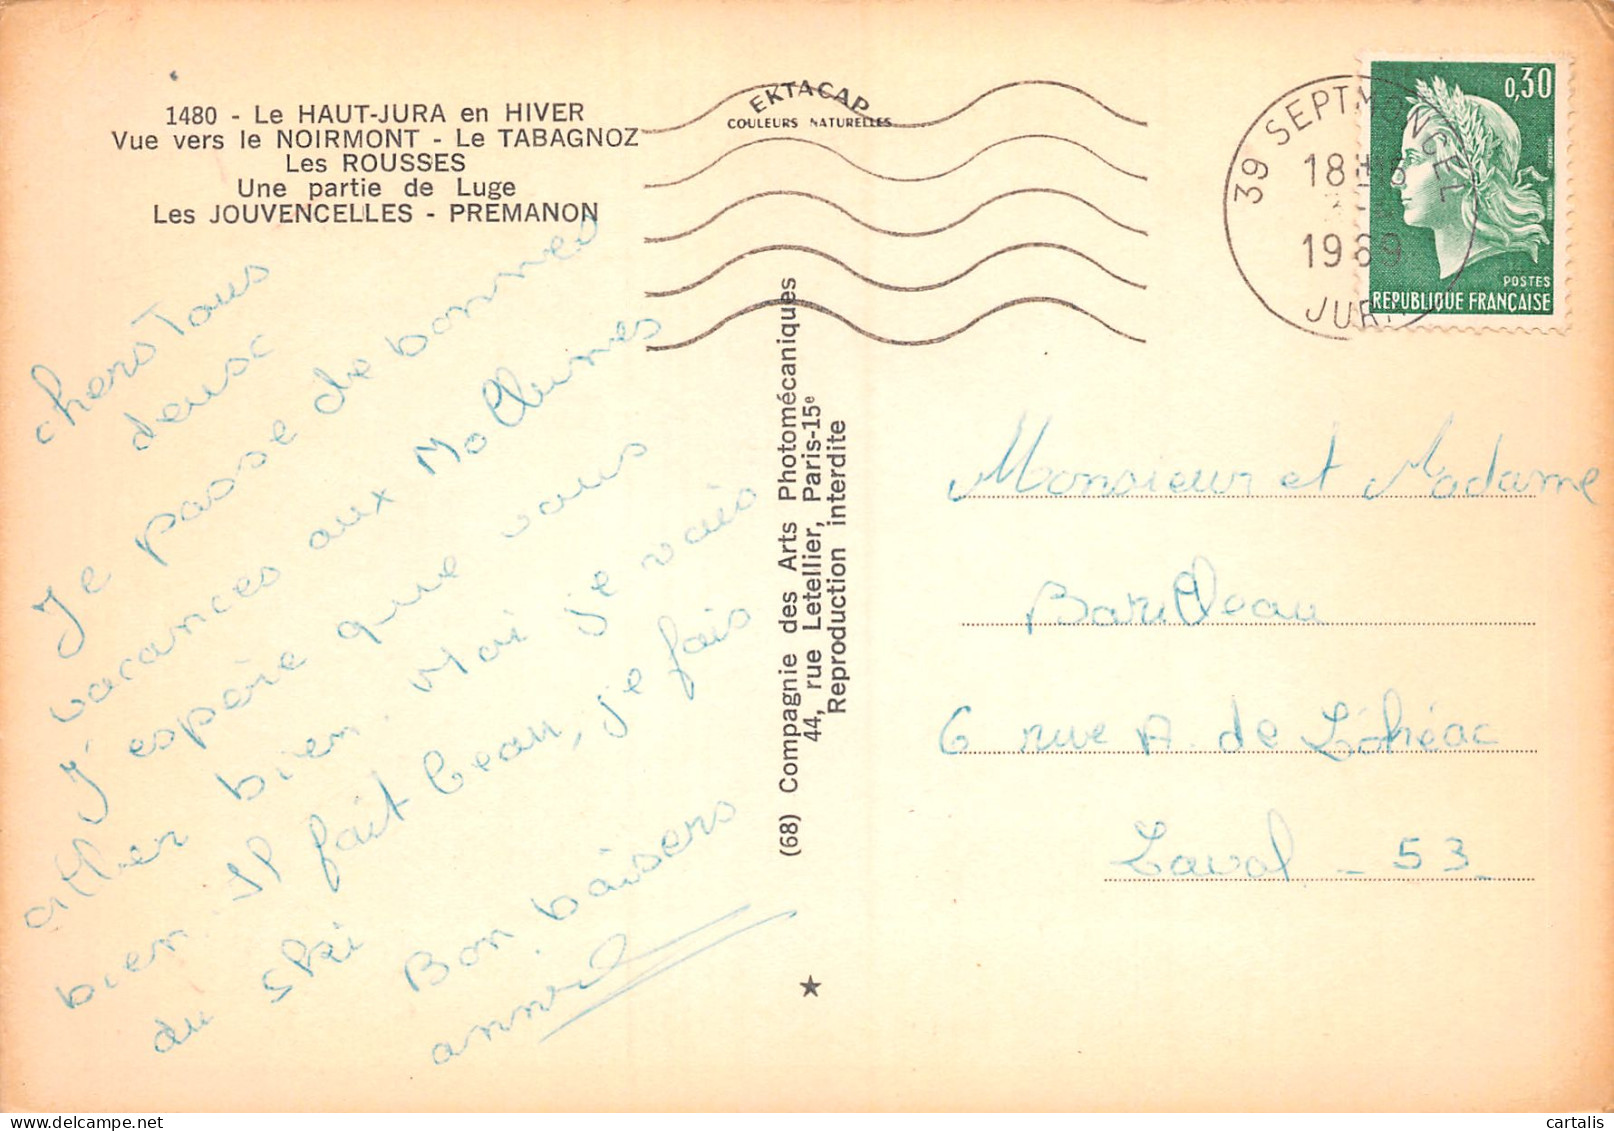 1480 - Le HAUT-JURA en HIVER
Vue vers le NOIRMONT - Le TABAGNOZ
Les ROUSSES
Une partie de Luge
Les JOUVENCELLES - PREMANON
EKTACAP
COULEURS NATURELLES
39 SEPTMONCEL
18H
1969
JURA
0,30
POSTES
REPUBLIQUE FRANÇAISE
chers Tous
deux
Je passe de bonnes
vacances aux Mollunes
J'espère que vous
aller bien. Moi je vais
bien. Il fait beau, je fais
du ski
Bon baisers
(68) Compagnie des Arts Photomécaniques
44, rue Letellier, Paris-15e
Reproduction interdite
★
Monsieur et Madame
Barilleau
6 rue A. de Léhéac
Laval - 53
cartalis